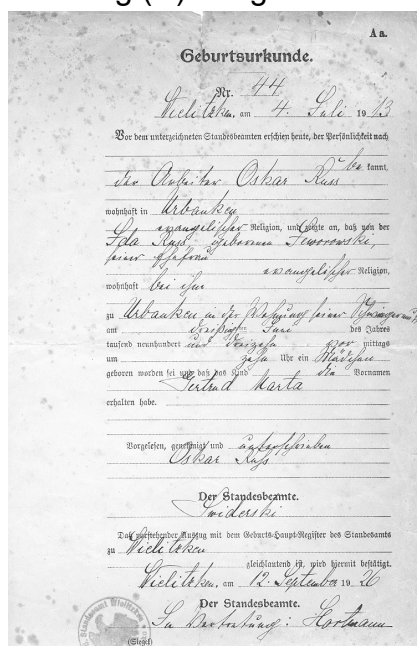 A a.
Geburtsurkunde.
Nr. 44
Wielitzken, am 4. Juli 1913
Vor dem unterzeichneten Standesbeamten erschien heute, der Persönlichkeit nach
bekannt,
der Arbeiter Oskar Russ
wohnhaft in Urbanken
evangelischer Religion, und zeigte an, daß von der
Ida Russ geborenen Jeworowski,
seiner Ehefrau
evangelischer Religion,
wohnhaft bei ihm
zu Urbanken in der Wohnung seiner
am dreißigsten Juni des Jahres
tausend neunhundert und dreizehn vor mittags
um zehn Uhr ein Mädchen
geboren worden sei und daß das Kind die Vornamen
Gertrud Marta
erhalten habe.
Vorgelesen, genehmigt und unterschrieben
Oskar Russ
Der Standesbeamte.
Swiderski
Daß vorstehender Auszug mit dem Geburts-Haupt-Register des Standesamts
zu Wielitzken
gleichlautend ist, wird hiermit bestätigt.
Wielitzken, am 12. September 1926
Der Standesbeamte.
In Vertretung: Hartmann
(Siegel)